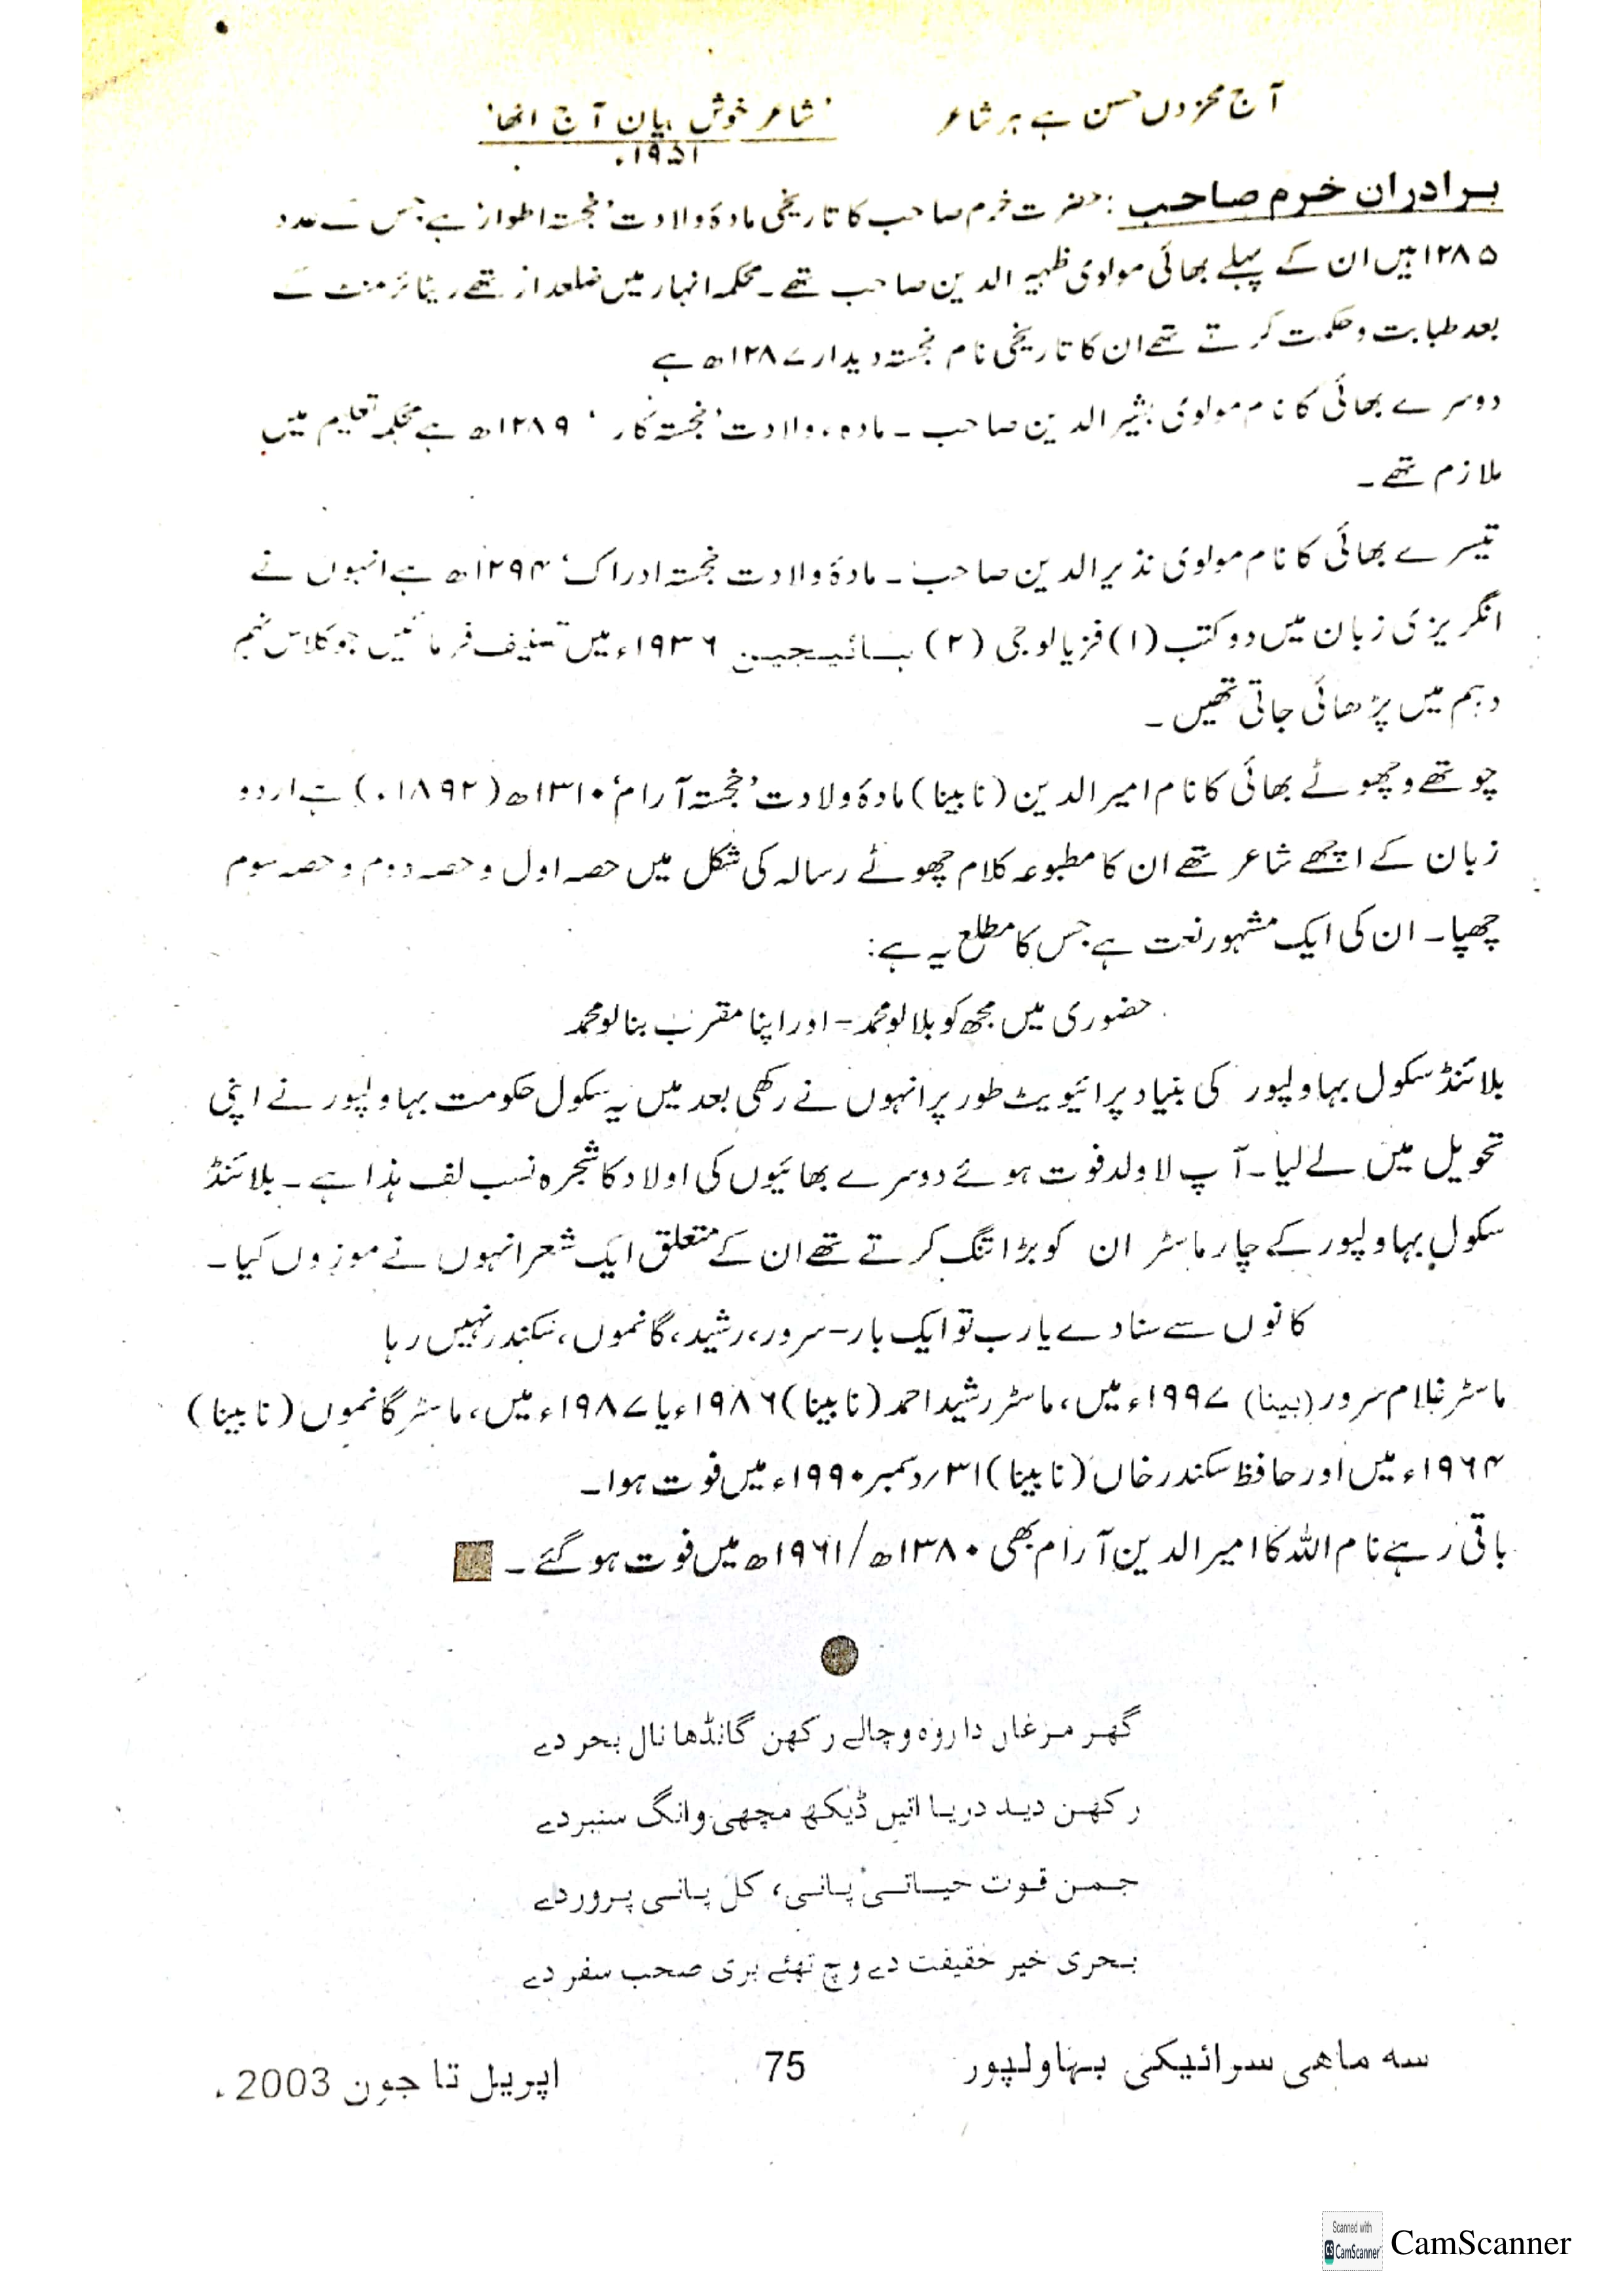 آج محزوں حسن ہے ہر شاعر 'شاعر خوش بیان آج اٹھا'
۱۹۵۱ء
برادران خرم صاحب: حضرت خرم صاحب کا تاریخی مادۂ ولادت 'خجستہ اطوار' ہے جس کے عدد
۱۲۸۵ ہیں ان کے پہلے بھائی مولوی ظہیر الدین صاحب تھے۔ محکمہ انہار میں ضلعدار تھے ریٹائرمنٹ کے
بعد طبابت و حکمت کرتے تھے ان کا تاریخی نام خجستہ دیدار ۱۲۸۷ھ ہے
دوسرے بھائی کا نام مولوی بشیر الدین صاحب۔ مادہء ولادت 'خجستہ کار' ۱۲۸۹ھ ہے محکمہ تعلیم میں
ملازم تھے۔
تیسرے بھائی کا نام مولوی نذیر الدین صاحب۔ مادۂ ولادت خجستہ ادراک' ۱۲۹۴ھ ہے انہوں نے
انگریزی زبان میں دو کتب (۱) فزیالوجی (۲) ہائیجین ۱۹۳۶ء میں تصنیف فرمائیں جو کلاس نہم
دہم میں پڑھائی جاتی تھیں۔
چوتھے و چھوٹے بھائی کا نام امیر الدین (نابینا) مادۂ ولادت 'خجستہ آرام' ۱۳۱۰ھ (۱۸۹۲ء) ہے اردو
زبان کے اچھے شاعر تھے ان کا مطبوعہ کلام چھوٹے رسالہ کی شکل میں حصہ اول و حصہ دوم و حصہ سوم
چھپا۔ ان کی ایک مشہور نعت ہے جس کا مطلع یہ ہے:
حضوری میں مجھ کو بلا لو محمدؐ - اور اپنا مقرب بنا لو محمدؐ
بلائنڈ سکول بہاولپور کی بنیاد پرائیویٹ طور پر انہوں نے رکھی بعد میں یہ سکول حکومت بہاولپور نے اپنی
تحویل میں لے لیا۔ آپ لا ولد فوت ہوئے دوسرے بھائیوں کی اولاد کا شجرہ نسب لف ہذا ہے۔ بلائنڈ
سکول بہاولپور کے چار ماسٹر ان کو بڑا تنگ کرتے تھے ان کے متعلق ایک شعر انہوں نے موزوں کیا۔
کانوں سے سنا دے یا رب تو ایک بار - سرور، رشید، گانموں، سکندر نہیں رہا
ماسٹر غلام سرور (بینا) ۱۹۹۷ء میں، ماسٹر رشید احمد (نابینا) ۱۹۸۶ء یا ۱۹۸۷ء میں، ماسٹر گانموں (نابینا)
۱۹۶۴ء میں اور حافظ سکندر خاں (نابینا) ۳۱/دسمبر ۱۹۹۰ء میں فوت ہوا۔
باقی رہے نام اللہ کا امیر الدین آرام بھی ۱۳۸۰ھ/۱۹۶۱ھ میں فوت ہو گئے۔
گھر مرغاں دا روہ وچالے رکھن گانڈھا نال بحر دے
رکھن دید دریا اتیں ڈیکھ مچھی وانگ سنبر دے
جمن قوت حیاتی پانی، کل پانی پرور دے
بحری خیر حقیقت دے وچ تھئے بری صحب سفر دے
سه ماهی سرائیکی بہاولپور 75 اپریل تا جون 2003ء
Scanned with
CS CamScanner
CamScanner